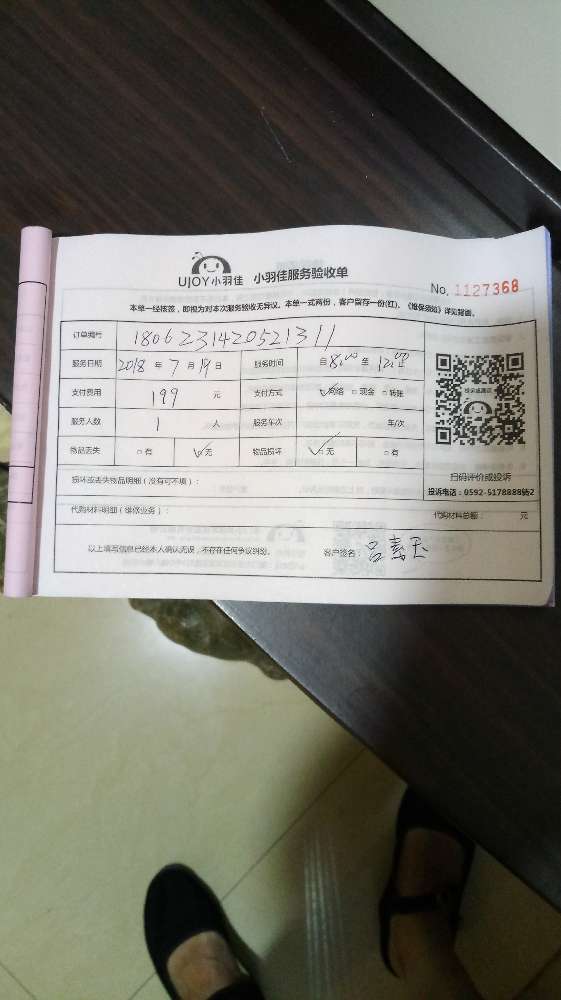 UJOY小羽佳 小羽佳服务验收单 No. 1127368
本单一经核签，即视为对本次服务验收无异议。本单一式两份，客户留存一份(红)。《维保须知》详见背面。
订单编号 1806231420521311
服务日期 2018 年 7 月 19 日 服务时间 自 8:00 至 12:00 止
支付费用 199 元 支付方式 ☑网络 □现金 □转账
服务人数 1 人 服务车次 车/次
物品丢失 □有 ☑无 物品损坏 ☑无 □有
扫码评价或投诉
损坏或丢失物品明细（没有可不填）：
投诉电话：0592-5178888转2
代购材料明细（维修业务）： 代购材料总额： 元
以上填写信息已经本人确认无误，不存在任何争议纠纷。 客户签名：吕素玉